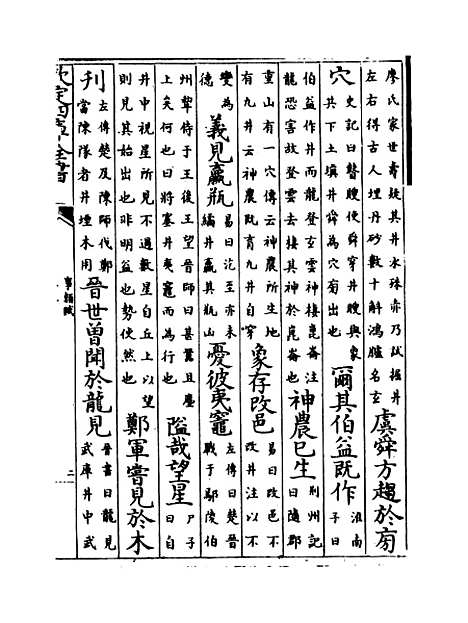 廖氏家世壽疑其井水殊赤乃試掘井
左右得古人埋丹砂數十斛鴻臚名玄
虞舜方趨於旁
穴
史記曰瞽瞍使舜穿井瞍與象
共下土填井舜為穴有出也
爾其伯益既作
淮南
子曰
伯益作井而龍登玄雲神棲崑崙注
龍恐害故登雲去棲其神於崑崙也
神農已生
荆州記
曰隨郡
重山有一穴傳云神農所生地
有九井云神農既育九井自穿
象存改邑
易曰改邑不
改井注以不
變為
德
義見羸瓶
易曰汔至亦未
繘井羸其瓶山
憂彼夷竈
左傳曰楚晉
戰于鄢陵伯
州犂侍于王後王望晉師曰甚囂且塵
上矣何也曰將塞井夷竈而為行也
隘哉望星
尸子
曰自
井中視星所見不過數星自丘上以望
則見其始出也非明益也勢使然也
鄭軍嘗見於木
刋
左傳楚及陳師伐鄭
當陳隊者井堙木用
晉世曽聞於龍見
晉書曰龍見
武庫井中武
欽定四庫全書
事類賦
二